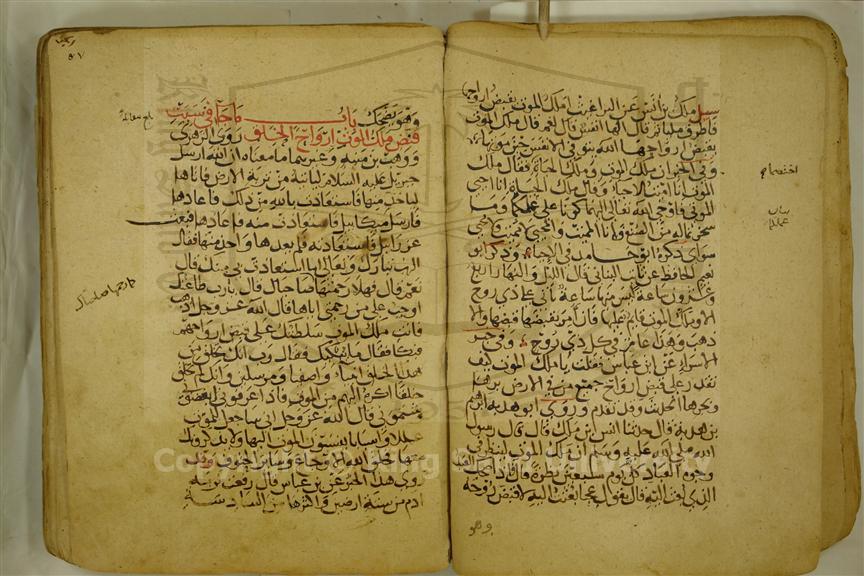 سيل ملك بن انس عن البراغيث املك الموت يقبض ارواحها
فاطرق مليا ثم قال الها نفس قال نعم قال ملك الموت
يقبض ارواحها الله يتوفى الانفس حين موتها
وفي الخبر ان ملك الموت وملك الحياة فقال ملك
الموت انا اميت الاحياء وقال ملك الحياة انا احيي
الموتى فاوحى الله تعالى اليهما كونا على عملكما وما
سخرتما له من الصنع وانا المميت والمحيي لا مميت ولا محيي
سواي ذكره ابو حامد في الاحياء وذكر ابو
نعيم الحافظ عن ثابت البناني قال الليل والنهار اربع
وعشرون ساعة ليس منها ساعة تأتي على ذي روح
الا وملك الموت قايم عليها فان امر بقبضها قبضها والا
ذهب وهذا عام في كل ذي روح وفي خبر
الاسراء عن ابن عباس فقلت يا ملك الموت كيف
تقدر على قبض ارواح جميع من في الارض برها
وبحرها الحديث وقد تقدم وروى ابو هدبة ابراهيم
بن هدبة قال حدثنا انس ابن ملك قال قال رسول
الله صلى الله عليه وسلم ان ملك الموت لينظر في
وجوه العباد كل يوم سبعين نظرة قال اذا ضحك العبد
الذي بعث اليه قال يقول عجبا بعثت اليه لاقبض روحه
وهو
٥٧
وهو يضحك باب ما جاء في سبب
قبض ملك الموت ارواح الخلق روى الزهري
ووهب بن منبه وغيرهما ما معناه ان الله ارسل
جبريل عليه السلام لياتيه من تربة الارض فاتاها
لياخذ منها فاستعاذت بالله من ذلك فاعاذها
فارسل ميكاييل فاستعاذت منه فاعاذها فبعث
عزراييل فاستعاذت منه فلم يعذها واخذ منها فقال
الرب تبارك وتعالى اما استعاذت بي منك قال
نعم قال فهلا رحمتها كما رحمها صاحباك قال يارب طاعتك
اوجب علي من رحمتي اياها قال الله عز وجل اذهب
فانت ملك الموت سلطتك على قبض ارواحهم
فبكا فقال ما يبكيك فقال رب انك تخلق من
هذا الخلق انبياء واصفيا ومرسلين وانك لم تخلق
خلقا اكره اليهم من الموت فاذا عرفوني ابغضوني
وشتموني قال الله عز وجل اني ساجعل للموت
عللا واسبابا ينسبون الموت اليها ولا يذكرونك
معها فخلق الله الاوجاع وساير الحتوف وقد
روى هذا الخبر عن بن عباس قال رفعت تربة
ادم من ستة ارضين واكثرها من السادسة